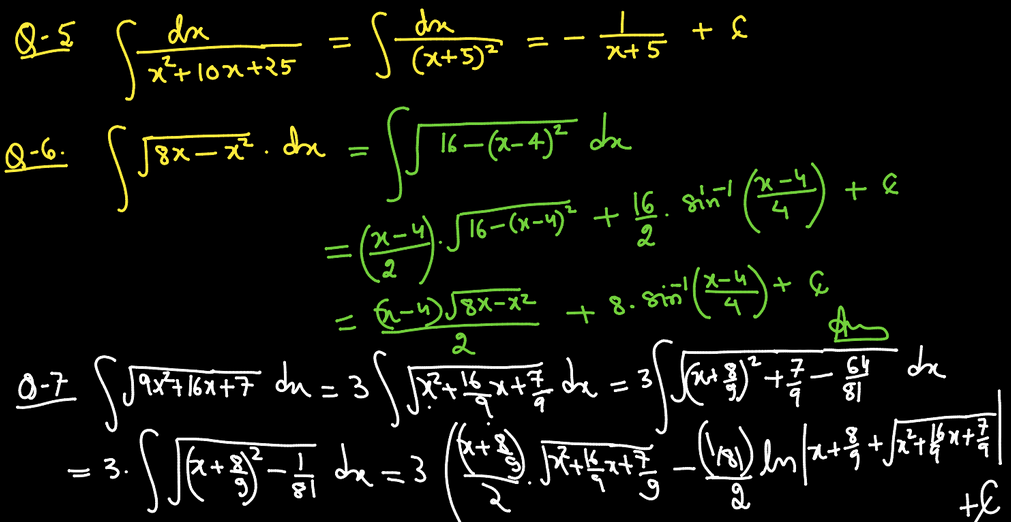 Q-5 ∫ dx/(x²+10x+25) = ∫ dx/(x+5)² = - 1/(x+5) + C
Q-6. ∫ √(8x-x²) . dx = ∫ √(16-(x-4)²) dx
= ((x-4)/2) . √(16-(x-4)²) + 16/2 . sin⁻¹((x-4)/4) + C
= (x-4)√(8x-x²)/2 + 8 . sin⁻¹((x-4)/4) + C
Ans
Q-7 ∫ √(9x²+16x+7) dx = 3 ∫ √(x²+16/9 x+7/9) dx = 3 ∫ √((x+8/9)²+7/9-64/81) dx
= 3 . ∫ √((x+8/9)²-1/81) dx = 3 ((x+8/9)/2 . √(x²+16/9 x+7/9) - (1/81)/2 ln|x+8/9+√(x²+16/9 x+7/9)|
+C